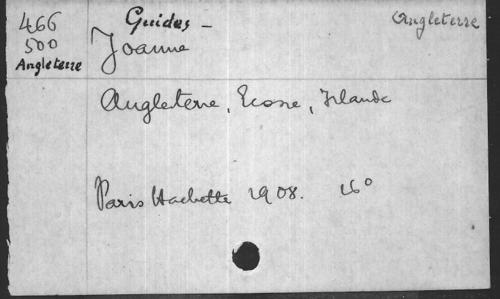 466
500
Angleterre
Guides -
Joanne
Angleterre
Angleterre, Ecosse, Irlande
Paris Hachette 1908. 16°